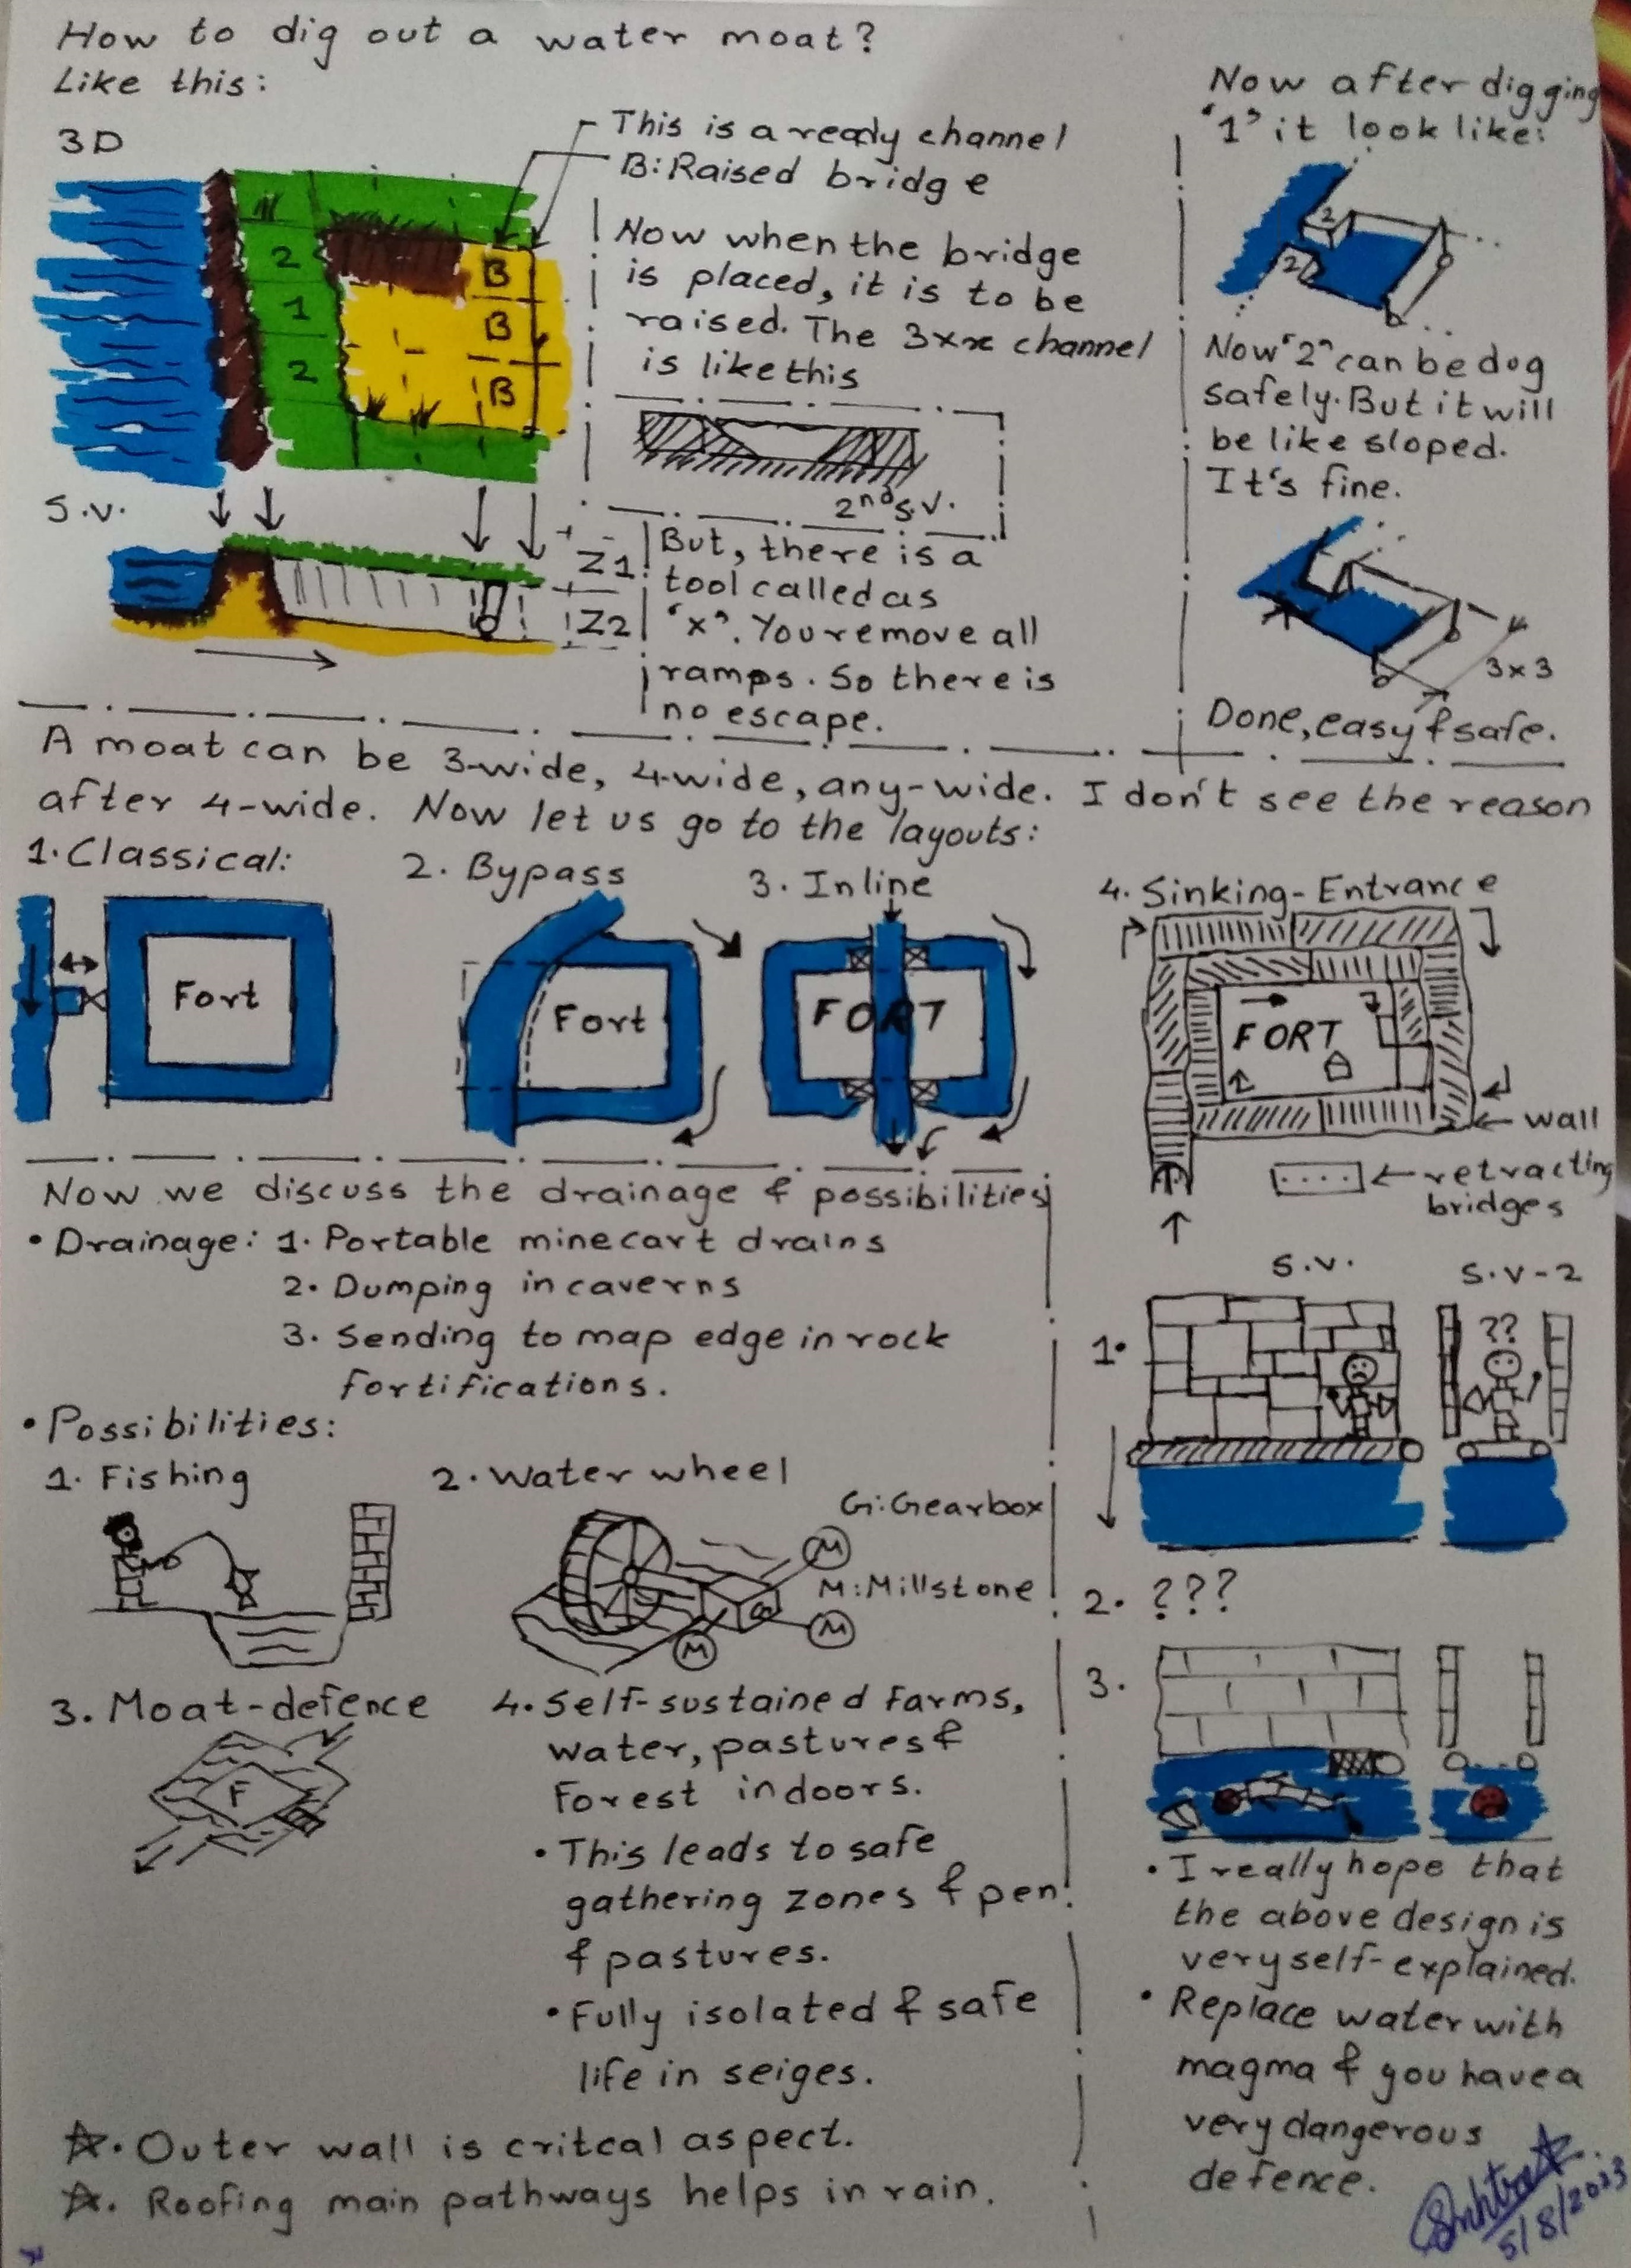 How to dig out a water moat?
Like this:
3D
2
1
2
B
B
B
This is a ready channel
B: Raised bridge
Now when the bridge
is placed, it is to be
raised. The 3xx channel
is like this
2nd s.v.
S.V.
Z1
Z2
But, there is a
tool called as
'x'. You remove all
ramps. So there is
no escape.
Now after digging
'1' it look like:
2
2
Now "2" can be dog
safely. But it will
be like sloped.
It's fine.
3x3
Done, easy & safe.
A moat can be 3-wide, 4-wide, any-wide. I don't see the reason
after 4-wide. Now let us go to the layouts:
1. Classical:
Fort
2. Bypass
Fort
3. Inline
FORT
4. Sinking-Entrance
FORT
wall
retracting
bridges
Now we discuss the drainage & possibilities
• Drainage: 1. Portable minecart drains
2. Dumping in caverns
3. Sending to map edge in rock
fortifications.
• Possibilities:
1. Fishing
2. Water wheel
G: Gearbox
M: Millstone
M
M
M
G
3. Moat-defence
F
4. Self-sustained farms,
water, pastures &
Forest indoors.
• This leads to safe
gathering zones & pen
& pastures.
• Fully isolated & safe
life in seiges.
☆. Outer wall is critcal aspect.
☆. Roofing main pathways helps in rain.
S.V.
S.V-2
1.
??
2. ???
3.
• I really hope that
the above design is
very self-explained.
• Replace water with
magma & you have a
very dangerous
defence.
5/8/2023